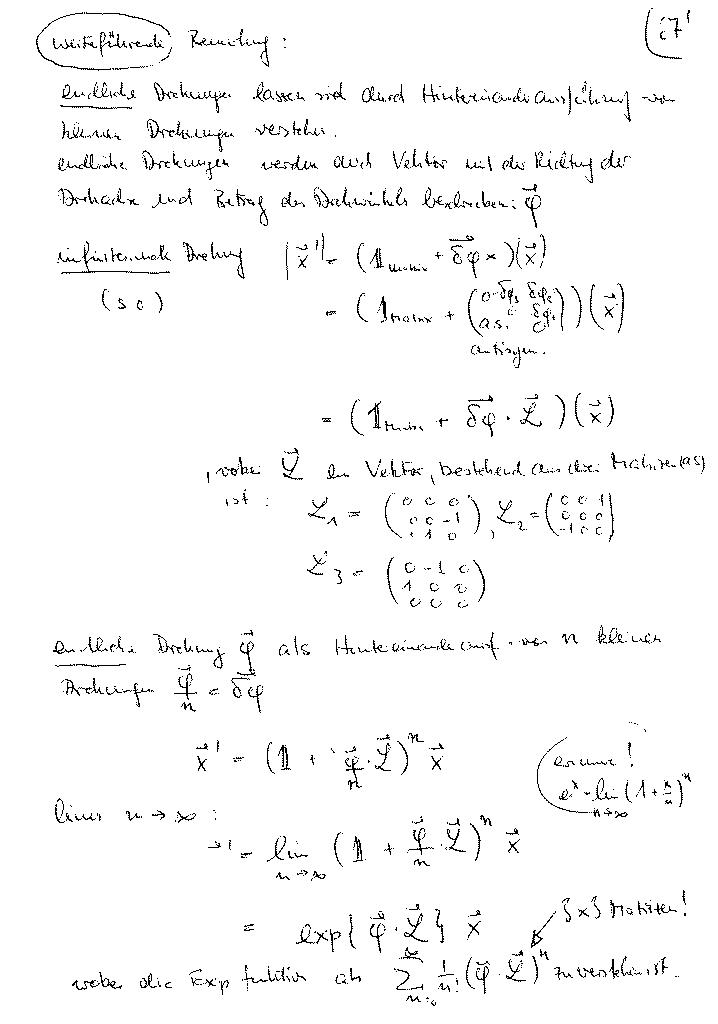 weiterführende Bemerkung : 27'
endliche Drehungen lassen sich durch Hintereinanderausführung von
kleinen Drehungen verstehen.
endliche Drehungen werden durch Vektor mit der Richtung der
Drehachse und Betrag des Drehwinkels beschrieben: φ⃗
infinitesimale Drehung (x⃗') = (𝟙 + δφ⃗ × )(x⃗)
(s o)
= (𝟙Matrix + (0 -δφ₃ δφ₂ as. 0 δφ₁ 0))(x⃗)
antisym.
= (𝟙 + δφ⃗ · L⃗ )(x⃗)
, wobei L⃗ ein Vektor, bestehend aus drei Matrizen (as)
ist : L₁ = (0 0 0 0 0 -1 0 1 0) , L₂ = (0 0 1 0 0 0 -1 0 0)
L₃ = (0 -1 0 1 0 0 0 0 0)
endliche Drehung φ⃗ als Hintereinanderausf. von n kleinen
Drehungen φ⃗/n = δφ⃗
x⃗' = (𝟙 + φ⃗/n · L⃗)ⁿ x⃗
erinnere !
eˣ = lim n→∞ (1 + x/n)ⁿ
limes n → ∞ :
x⃗' = lim n→∞ (𝟙 + φ⃗/n · L⃗)ⁿ x⃗
= exp{ φ⃗ · L⃗ } x⃗ 3x3 Matrizen!
wobei die Exp funktion als ∑ n=0 ∞ 1/n! (φ⃗ · L⃗)ⁿ zu verstehen ist.